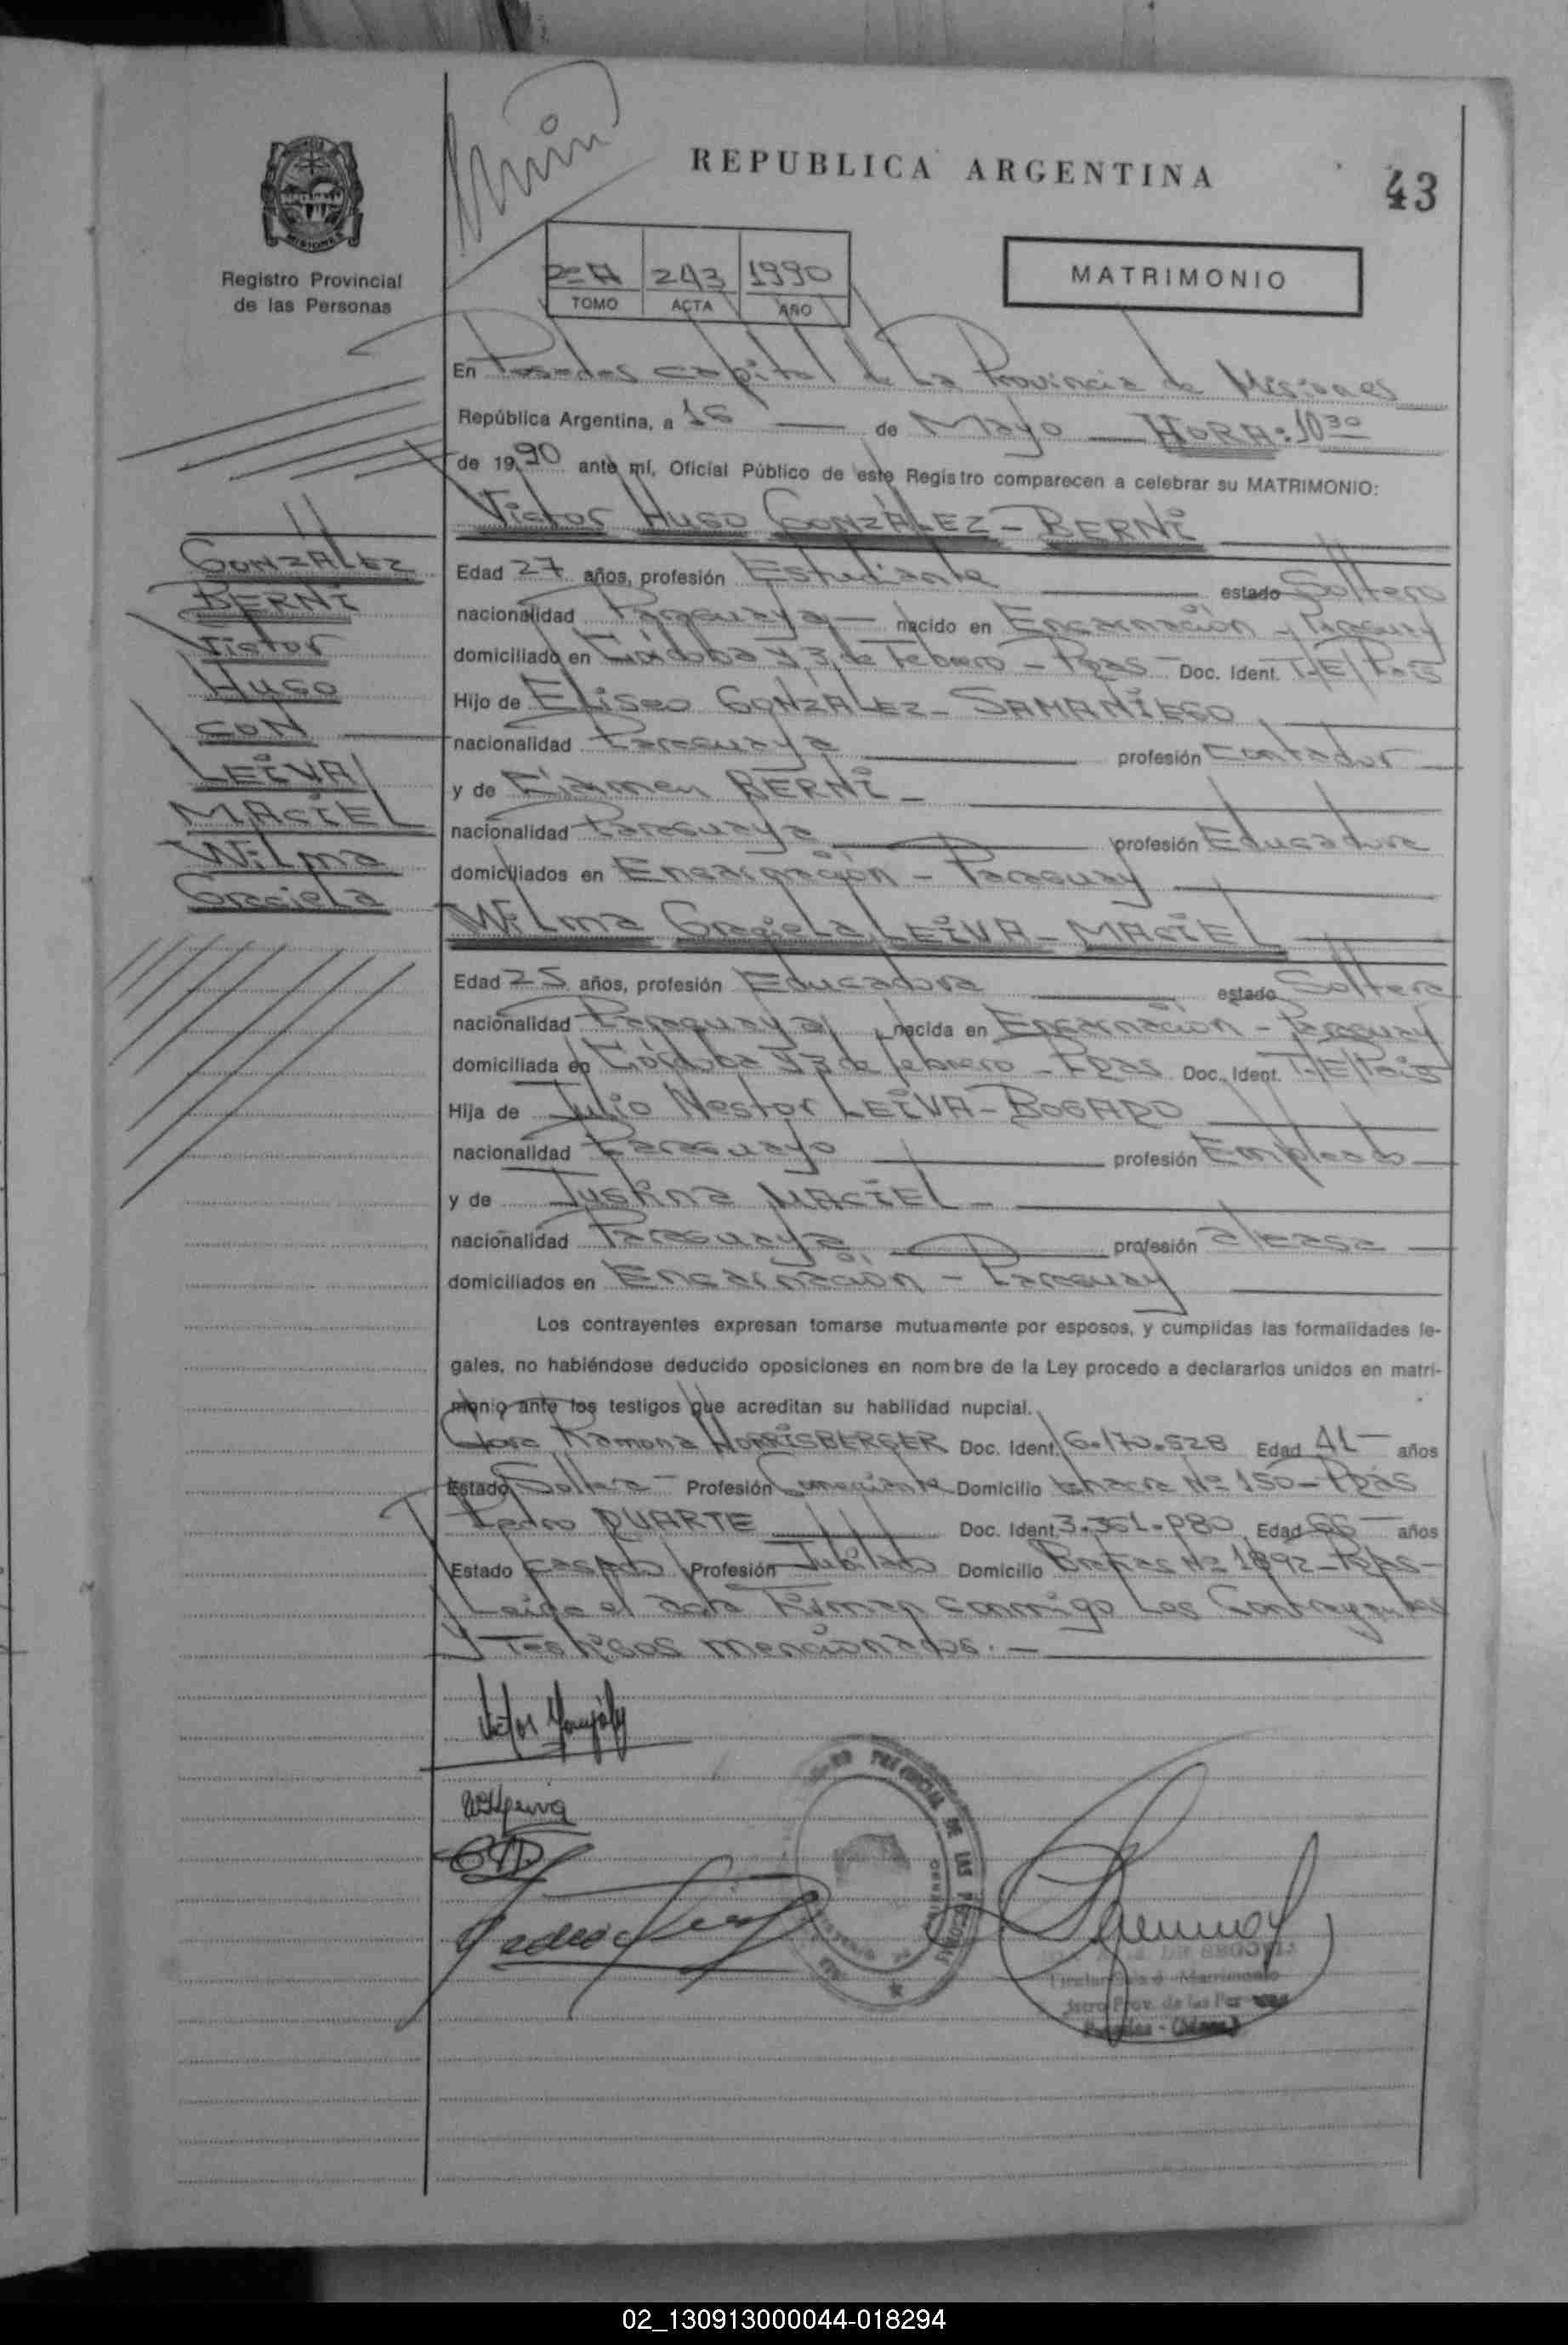 REPUBLICA ARGENTINA
43
MISIONES
Registro Provincial
de las Personas
2º A 243 1990
TOMO ACTA AÑO
MATRIMONIO
En Posadas capital de La Provincia de Misiones
República Argentina, a 16 de Mayo HORA: 10 30
de 1990 ante mí, Oficial Público de este Registro comparecen a celebrar su MATRIMONIO:
Victor Hugo GONZÁLEZ - BERNI
GONZALEZ
BERNI
Victor
Hugo
CON
LEIVA
MACIEL
Wilma
Graciela
Edad 27 años, profesión Estudiante estado Soltero
nacionalidad Paraguaya nacido en Encarnación Paraguay
domiciliado en Córdoba y 3 de Febrero - Pdas Doc. Ident.
Hijo de Eliseo GONZALEZ - SAMANIEGO
nacionalidad Paraguaya profesión Contador
y de BERNI
nacionalidad Paraguaya profesión Educadora
domiciliados en Encarnación - Paraguay
Wilma Graciela LEIVA - MACIEL
Edad 25 años, profesión Educadora estado Soltera
nacionalidad Paraguaya nacida en Encarnación - Paraguay
domiciliada en Córdoba y 3 de febrero - Pdas Doc. Ident.
Hija de Julio Nestor LEIVA - BOGADO
nacionalidad Paraguayo profesión Empleado
y de Justina MACIEL
nacionalidad Paraguaya profesión
domiciliados en Encarnación - Paraguay
Los contrayentes expresan tomarse mutuamente por esposos, y cumplidas las formalidades le-
gales, no habiéndose deducido oposiciones en nombre de la Ley procedo a declararlos unidos en matri-
monio ante los testigos que acreditan su habilidad nupcial.
Ramona HORRISBERGER Doc. Ident. 6.170.528 Edad 41 años
Estado Soltera Profesión Domicilio Chacra Nº 150 - Pdas
Pedro DUARTE Doc. Ident. 3.361.980 Edad 66 años
Estado casado Profesión Jubilado Domicilio Nº 1892 - Pdas -
Leida el acta Firman conmigo Los Contrayentes
y Testigos mencionados. -
Victor
DE SEGOVIA
Matrimonio
Prov. de las Per
02_130913000044-018294